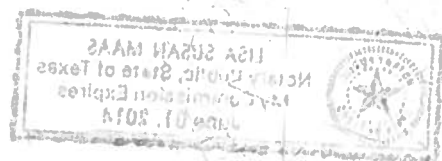 LISA SUSAN MAAS
Notary Public, State of Texas
My Commission Expires
June 01, 2014